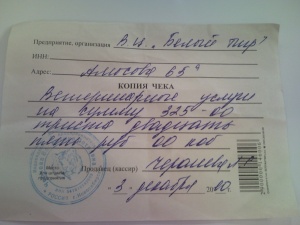 Предприятие, организация В.ц. "Белый тигр"
ИНН
Адрес Амосова 65ᵃ
КОПИЯ ЧЕКА
Ветеринарные услуги
на сумму 325-00
триста двадцать
пять руб 00 коп
Продавец (кассир)
3. декабря 20 г.